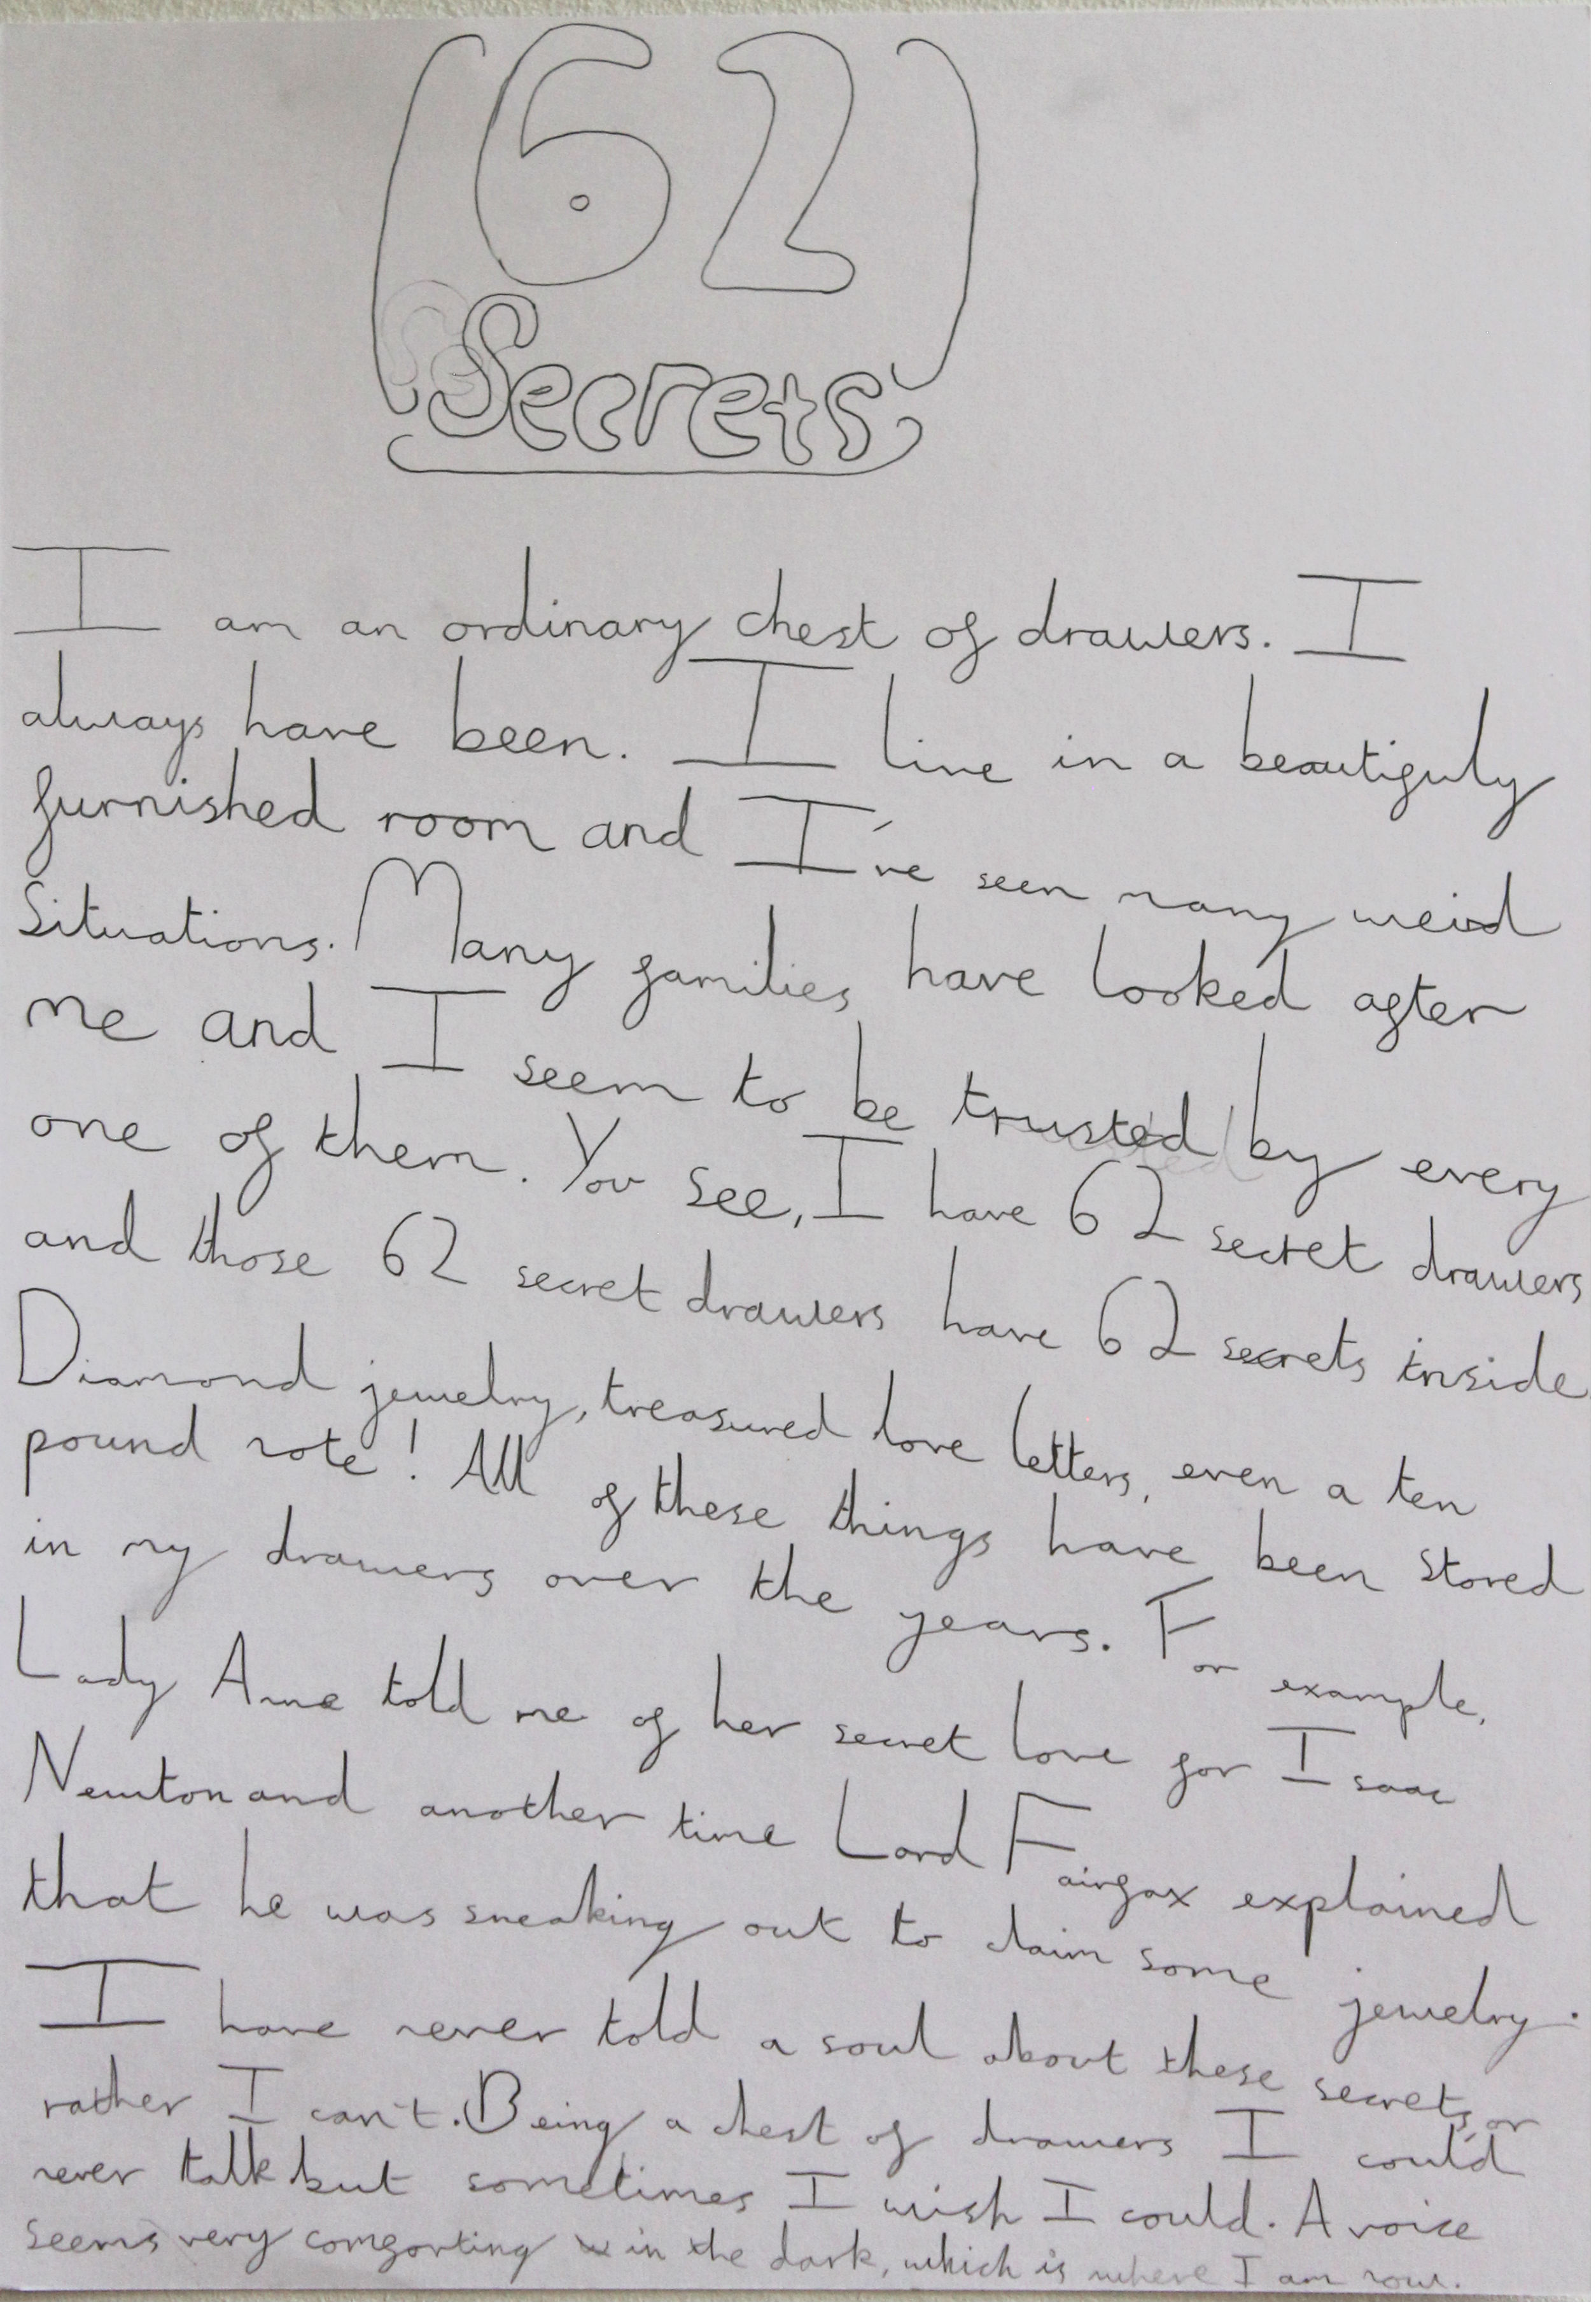 62
Secrets
I am an ordinary chest of drawers. I
always have been. I live in a beautifuly
furnished room and I've seen many weird
Situations. Many families have looked after
me and I seem to be trusted by every
one of them. You see, I have 62 secret drawers
and those 62 secret drawers have 62 secrets inside
Diamond jewelry, treasured love letters, even a ten
pound note! All of these things have been stored
in my drawers over the years. For example,
Lady Anne told me of her secret love for Isaac
Newton and another time Lord Fairfax explained
that he was sneaking out to claim some jewelry.
I have never told a soul about these secrets, or
rather I can't. Being a chest of drawers I could
never talk but sometimes I wish I could. A voice
seems very comforting in the dark, which is where I am now.